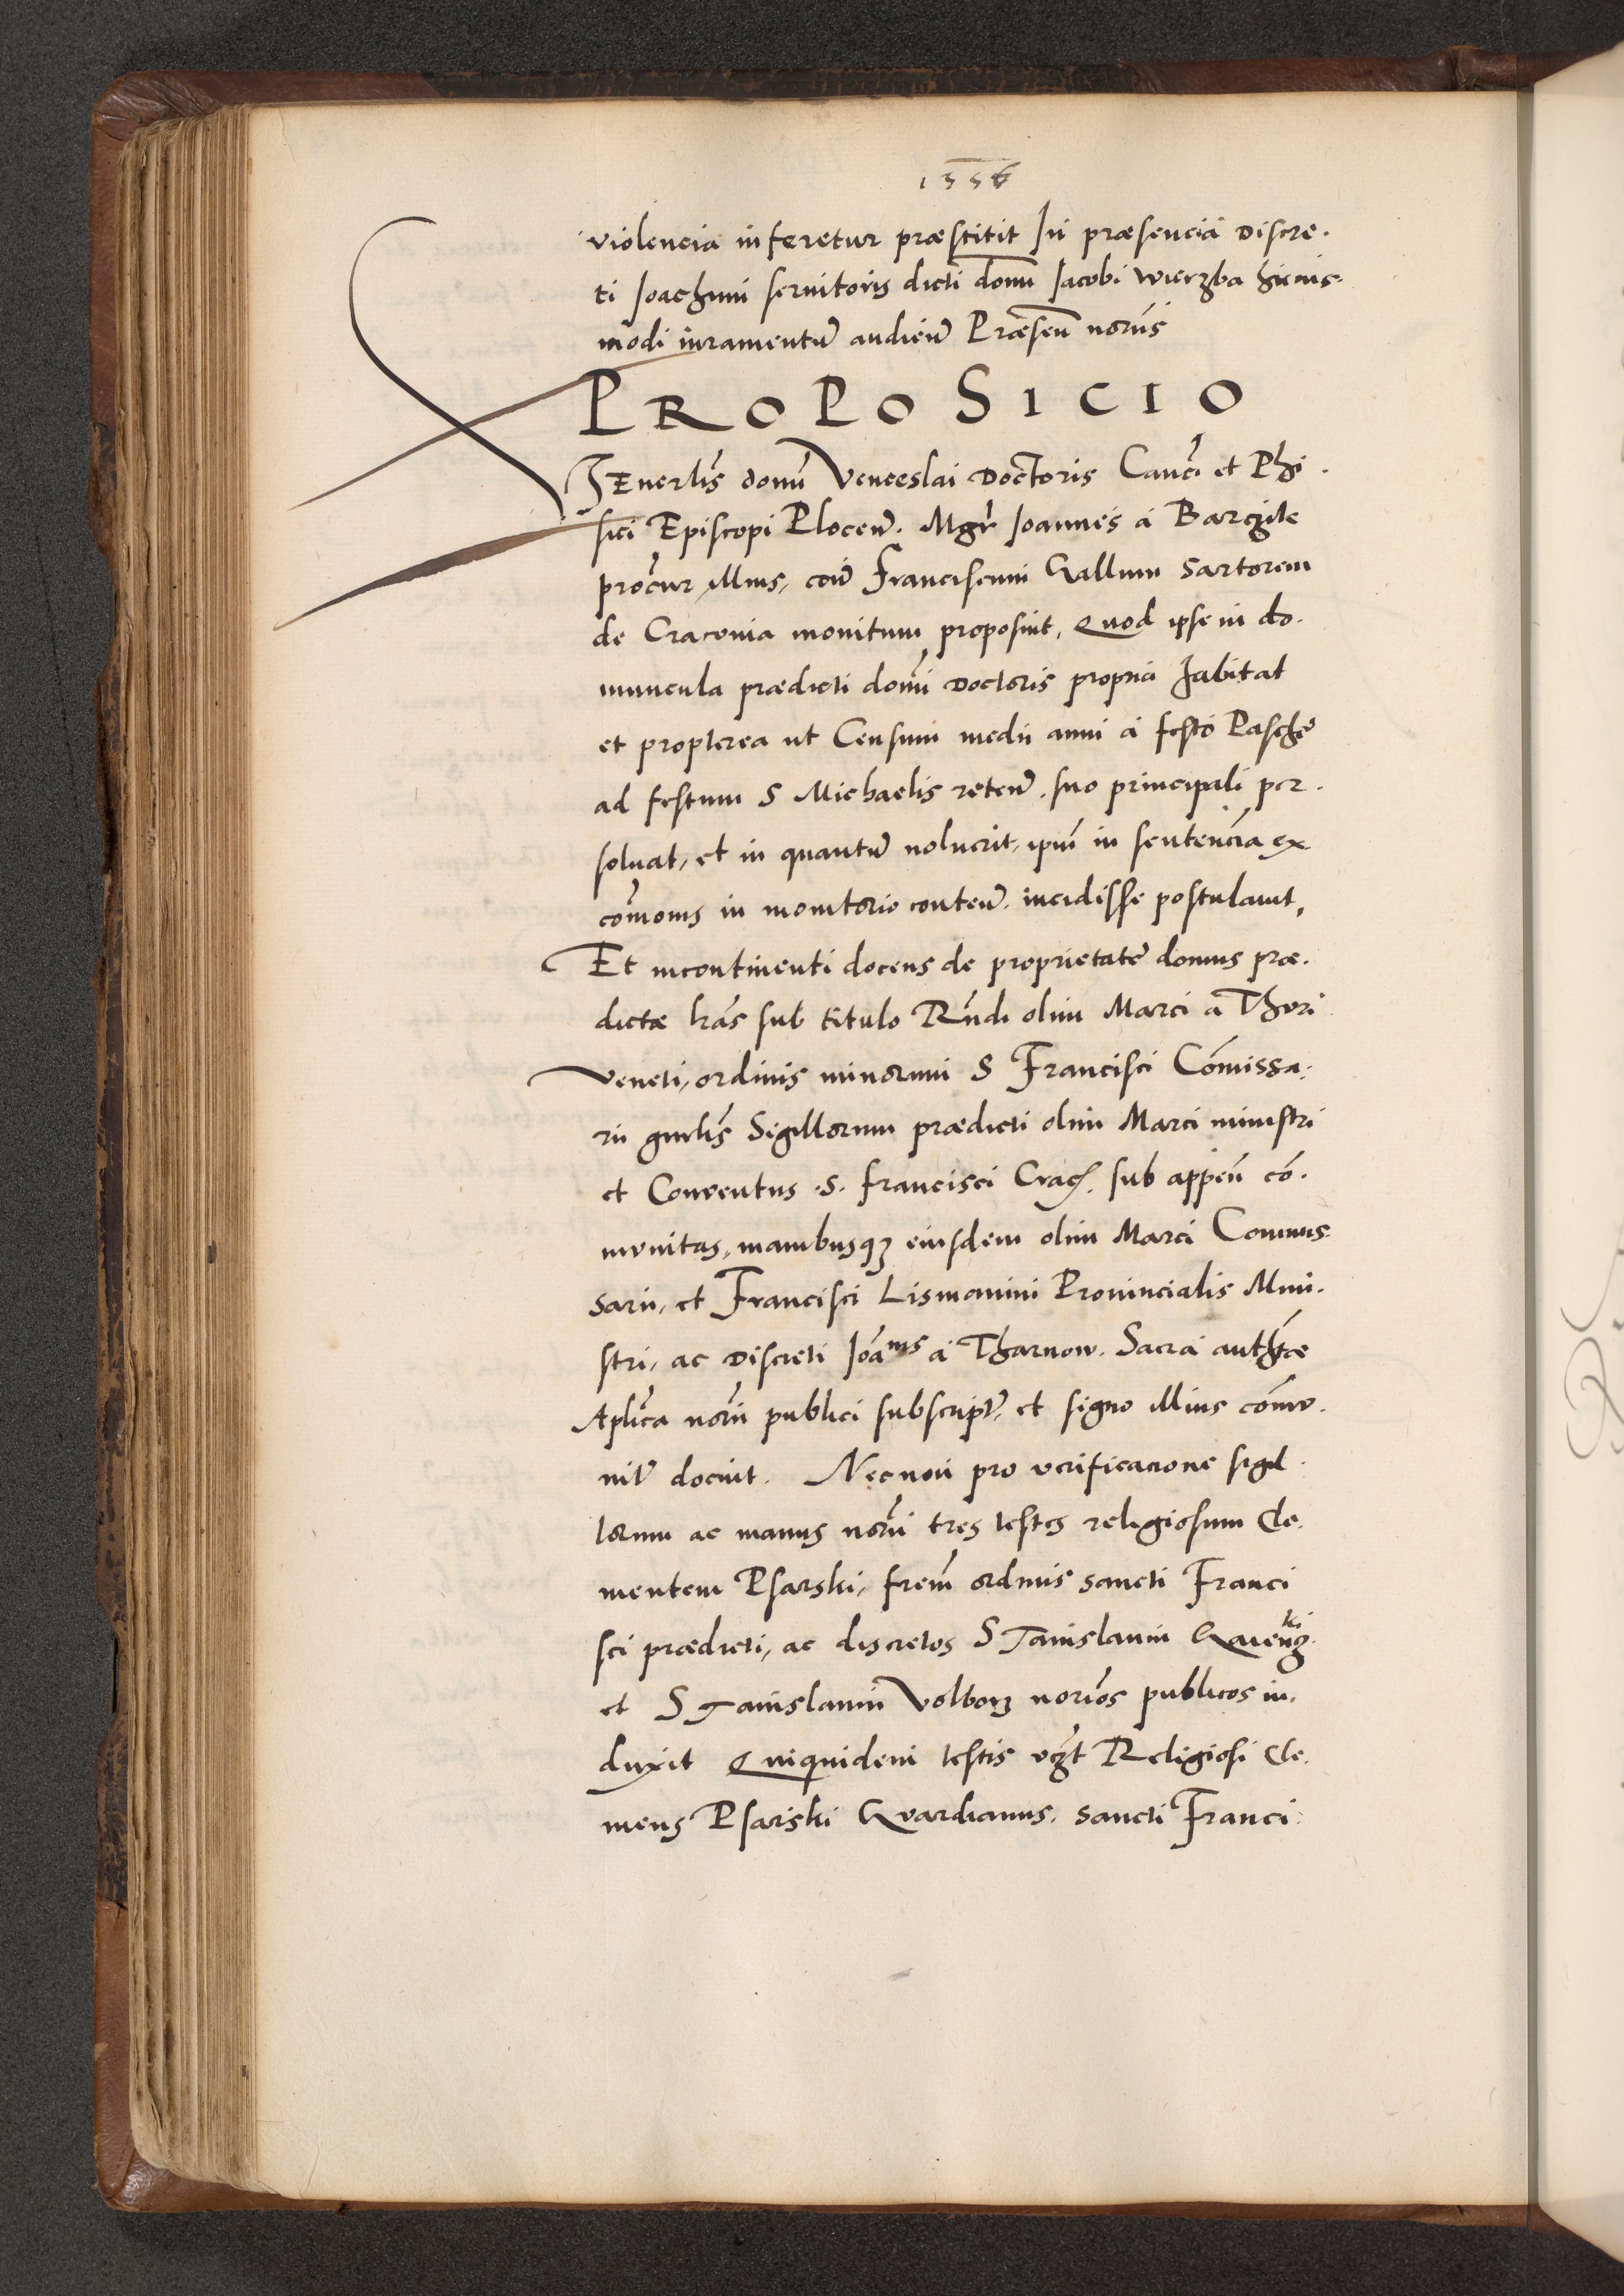 1556
violencia inferetur præstitit In præsencia Discre.
ti Joachimi servitoris dicti domi Jacobi Wierzba huius.
modi iuramentu audien Præsen norus
PROPOSICIO
Venerlis domi Venceslai Doctoris Canci et Phi.
sici Episcopi Plocen. Mgr Joannes a Barczik
procur illius, con Franciscum Gallum Sartorem
de Cracovia monitum proposuit, Quod ipse in do.
muncula prædicti domi Doctoris propria habitat
et propterea ut Censum medii anni a festo Paschæ
ad festum S Michaelis reten. suo principali per.
solvat, et in quantu noluerit, ipm in sentencia ex
comonis in monitorio conten. incidisse postulavit,
Et incontinenti docens de proprietate domus præ.
dictæ lras sub titulo Rndi olim Marci a Thuri
Veneti, ordinis minorum S Francisci Comissa.
rii gnrlis Sigillorum prædicti olim Marci ministri
et Conventus .S. Francisci Crac. sub appen co.
munitas, manibusq; eiusdem olim Marci Commis.
sarii, et Francisci Lismanini Provincialis Mini.
stri, ac Discreti Joanis a Tharnow. Sacra authte
Aplica norii publici subscript, et signo illius comu.
nit docuit. Necnon pro verificacione sigil.
lorum ac manus norii tres testes religiosum Cle.
mentem Psarski, frem ordinis sancti Franci
sci prædicti, ac discretos Stanislaum
et Stanislaum Volborz norios publicos in.
duxit Quiquidem testis vzt Religiosi Cle.
mens Psarski Gvardianus. sancti Franci.